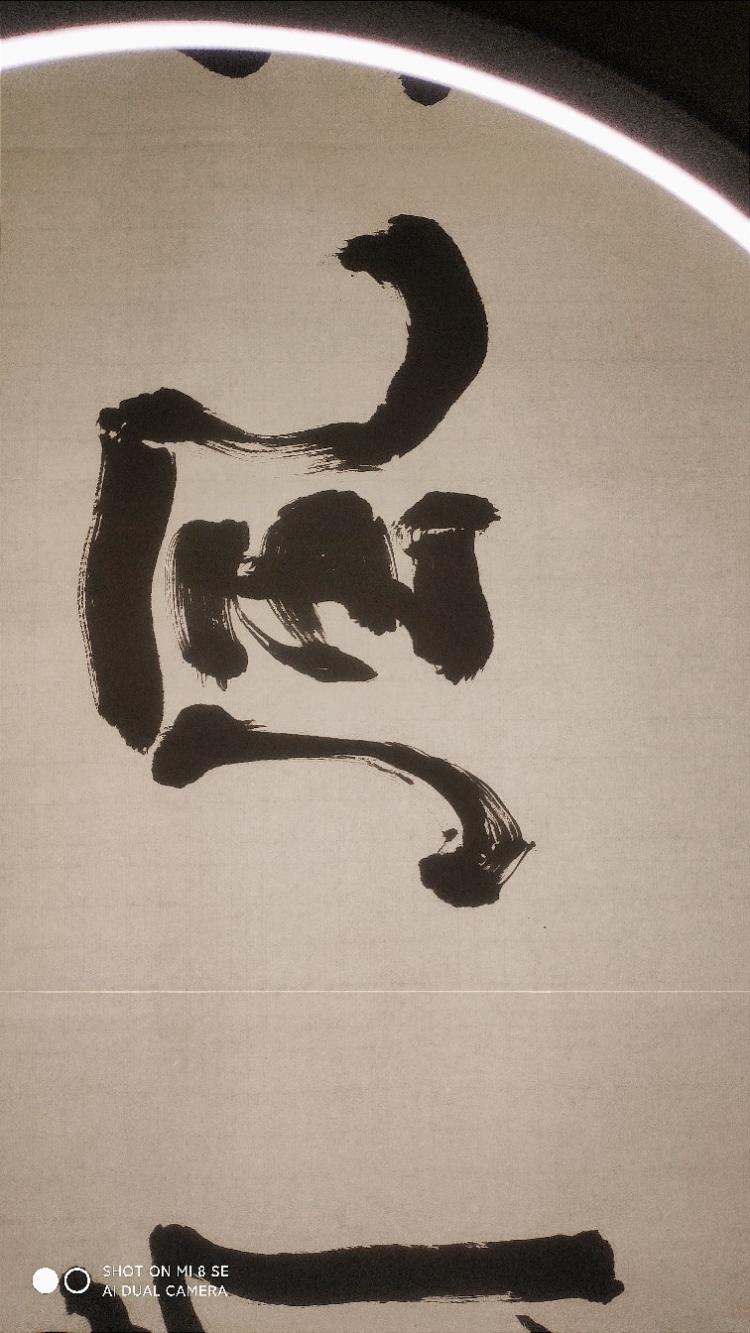 風
SHOT ON MI 8 SE
AI DUAL CAMERA